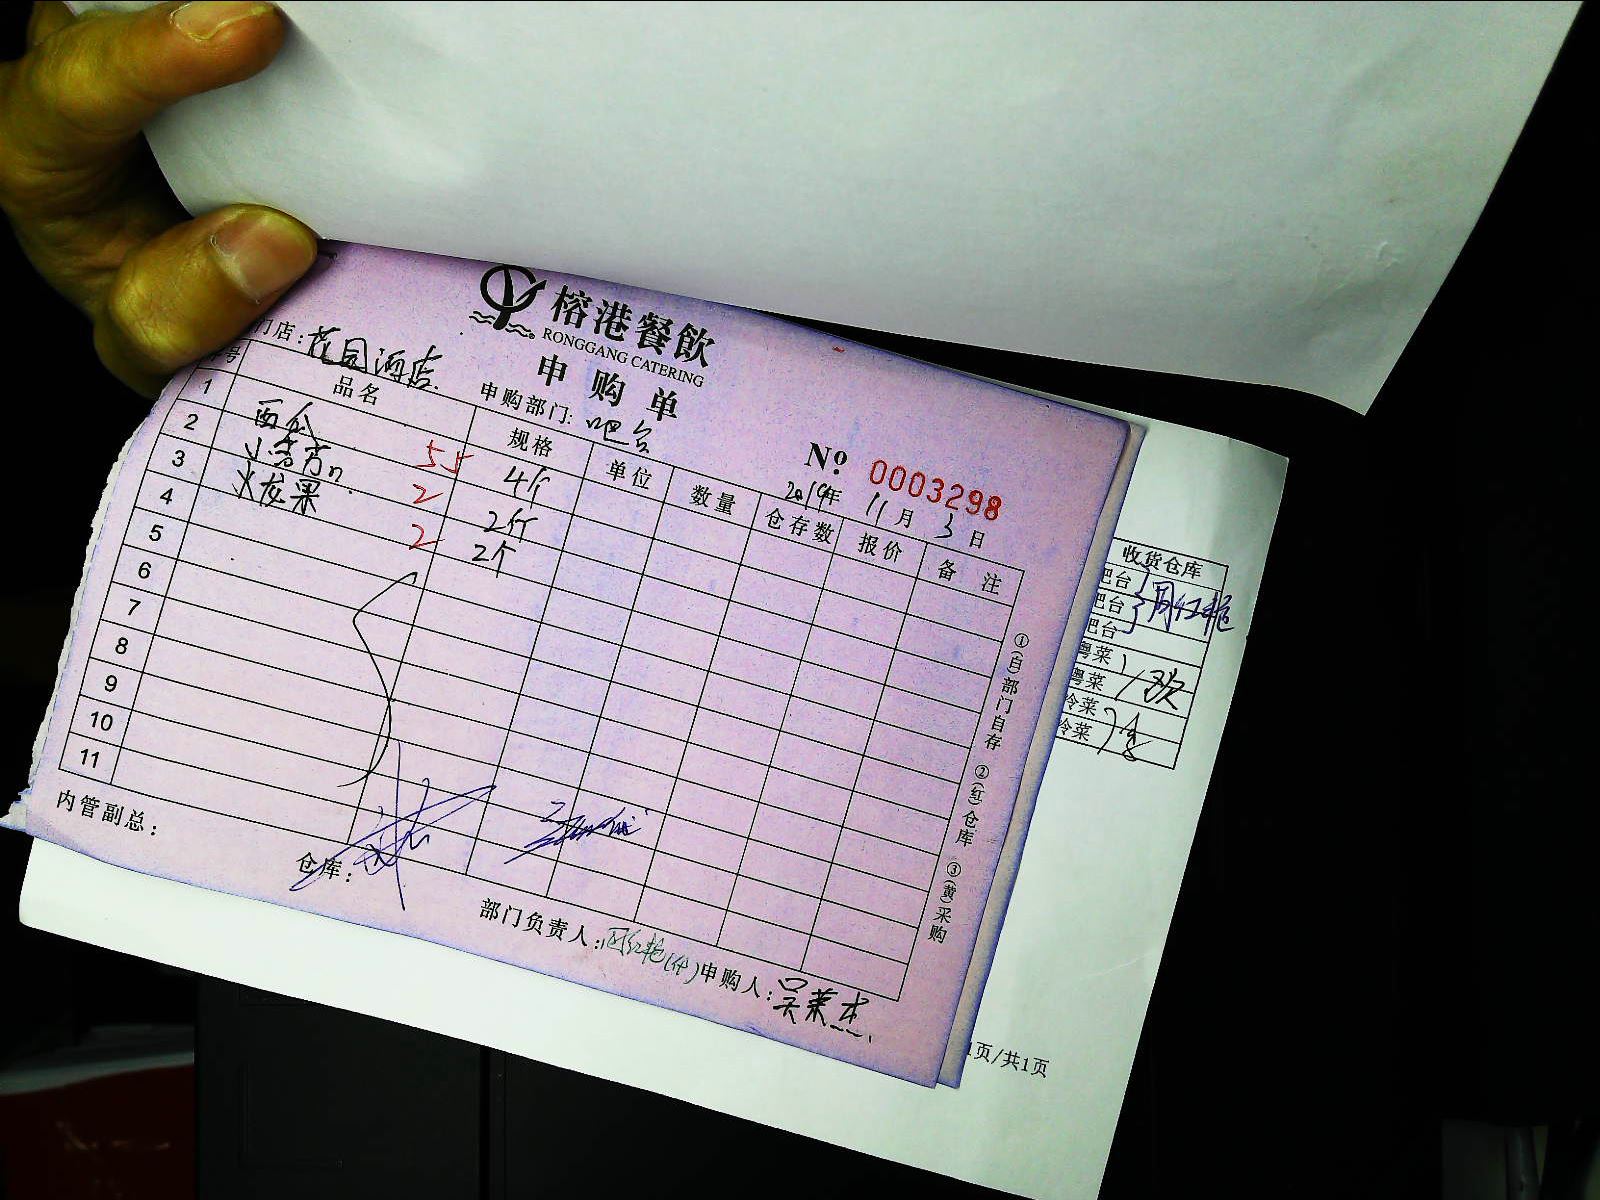 榕港餐飲
RONGGANG CATERING
申购单
门店: 花园酒店
申购部门: 吧台
No 0003298
2019年 11月 3日
序号 品名 规格 单位 数量 仓存数 报价 备注
1 西瓜 55 4个
2 2 2个
3 火龙果 2 2个
4
5
6
7
8
9
10
11
①(白)部门自存 ②(红)仓库 ③(黄)采购
内管副总:
仓库:
部门负责人: 周红艳(代)
申购人:
收货仓库
吧台
吧台 周红艳
吧台
粤菜
粤菜
冷菜
冷菜
1页/共1页